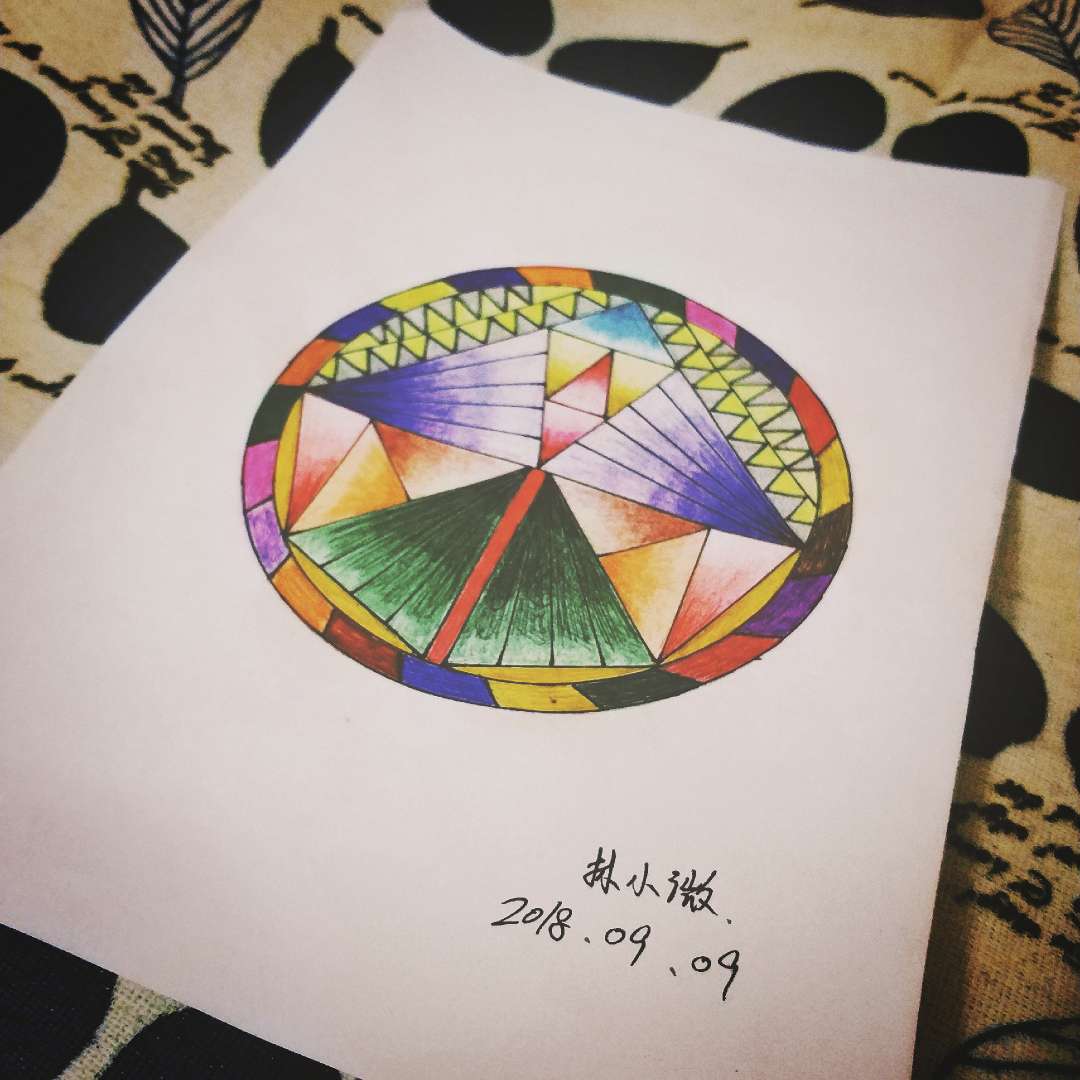 林小微.
2018.09.09